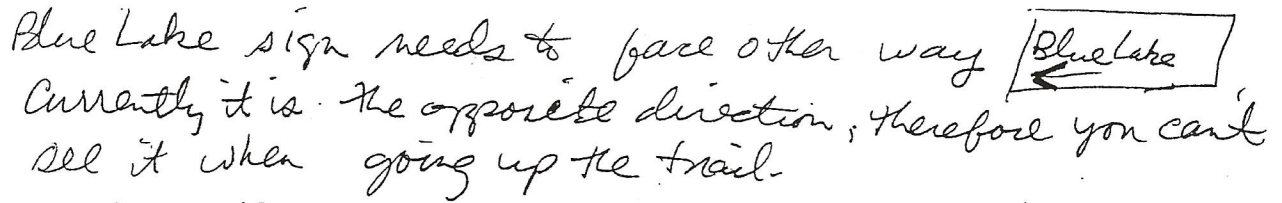 Blue Lake sign needs to face other way Blue Lake ←
Currently it is the opposite direction, therefore you can't
see it when going up the trail.